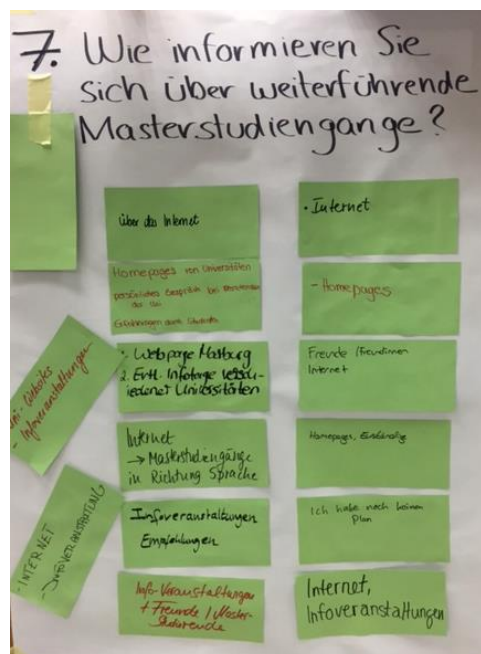 7. Wie informieren Sie
sich über weiterführende
Masterstudiengänge?
über das Internet
Homepages von Universitäten
persönliches Gespräch bei
der Uni
Erfahrungen durch
1. Webpage Marburg
2. Evtl. Infotage versch-
iedener Universitäten
Internet
→ Masterstudiengänge
in Richtung Sprache
Infoveranstaltungen
Empfehlungen
Info-Veranstaltungen
+ Freunde / Master-
studierende
• Internet
- Homepages
Freunde / Freundinnen
Internet
Homepages,
Ich habe noch keinen
Plan
Internet,
Infoveranstaltungen
Uni-Websites
- Infoveranstaltungen
- INTERNET
- INFOVERANSTALTUNG